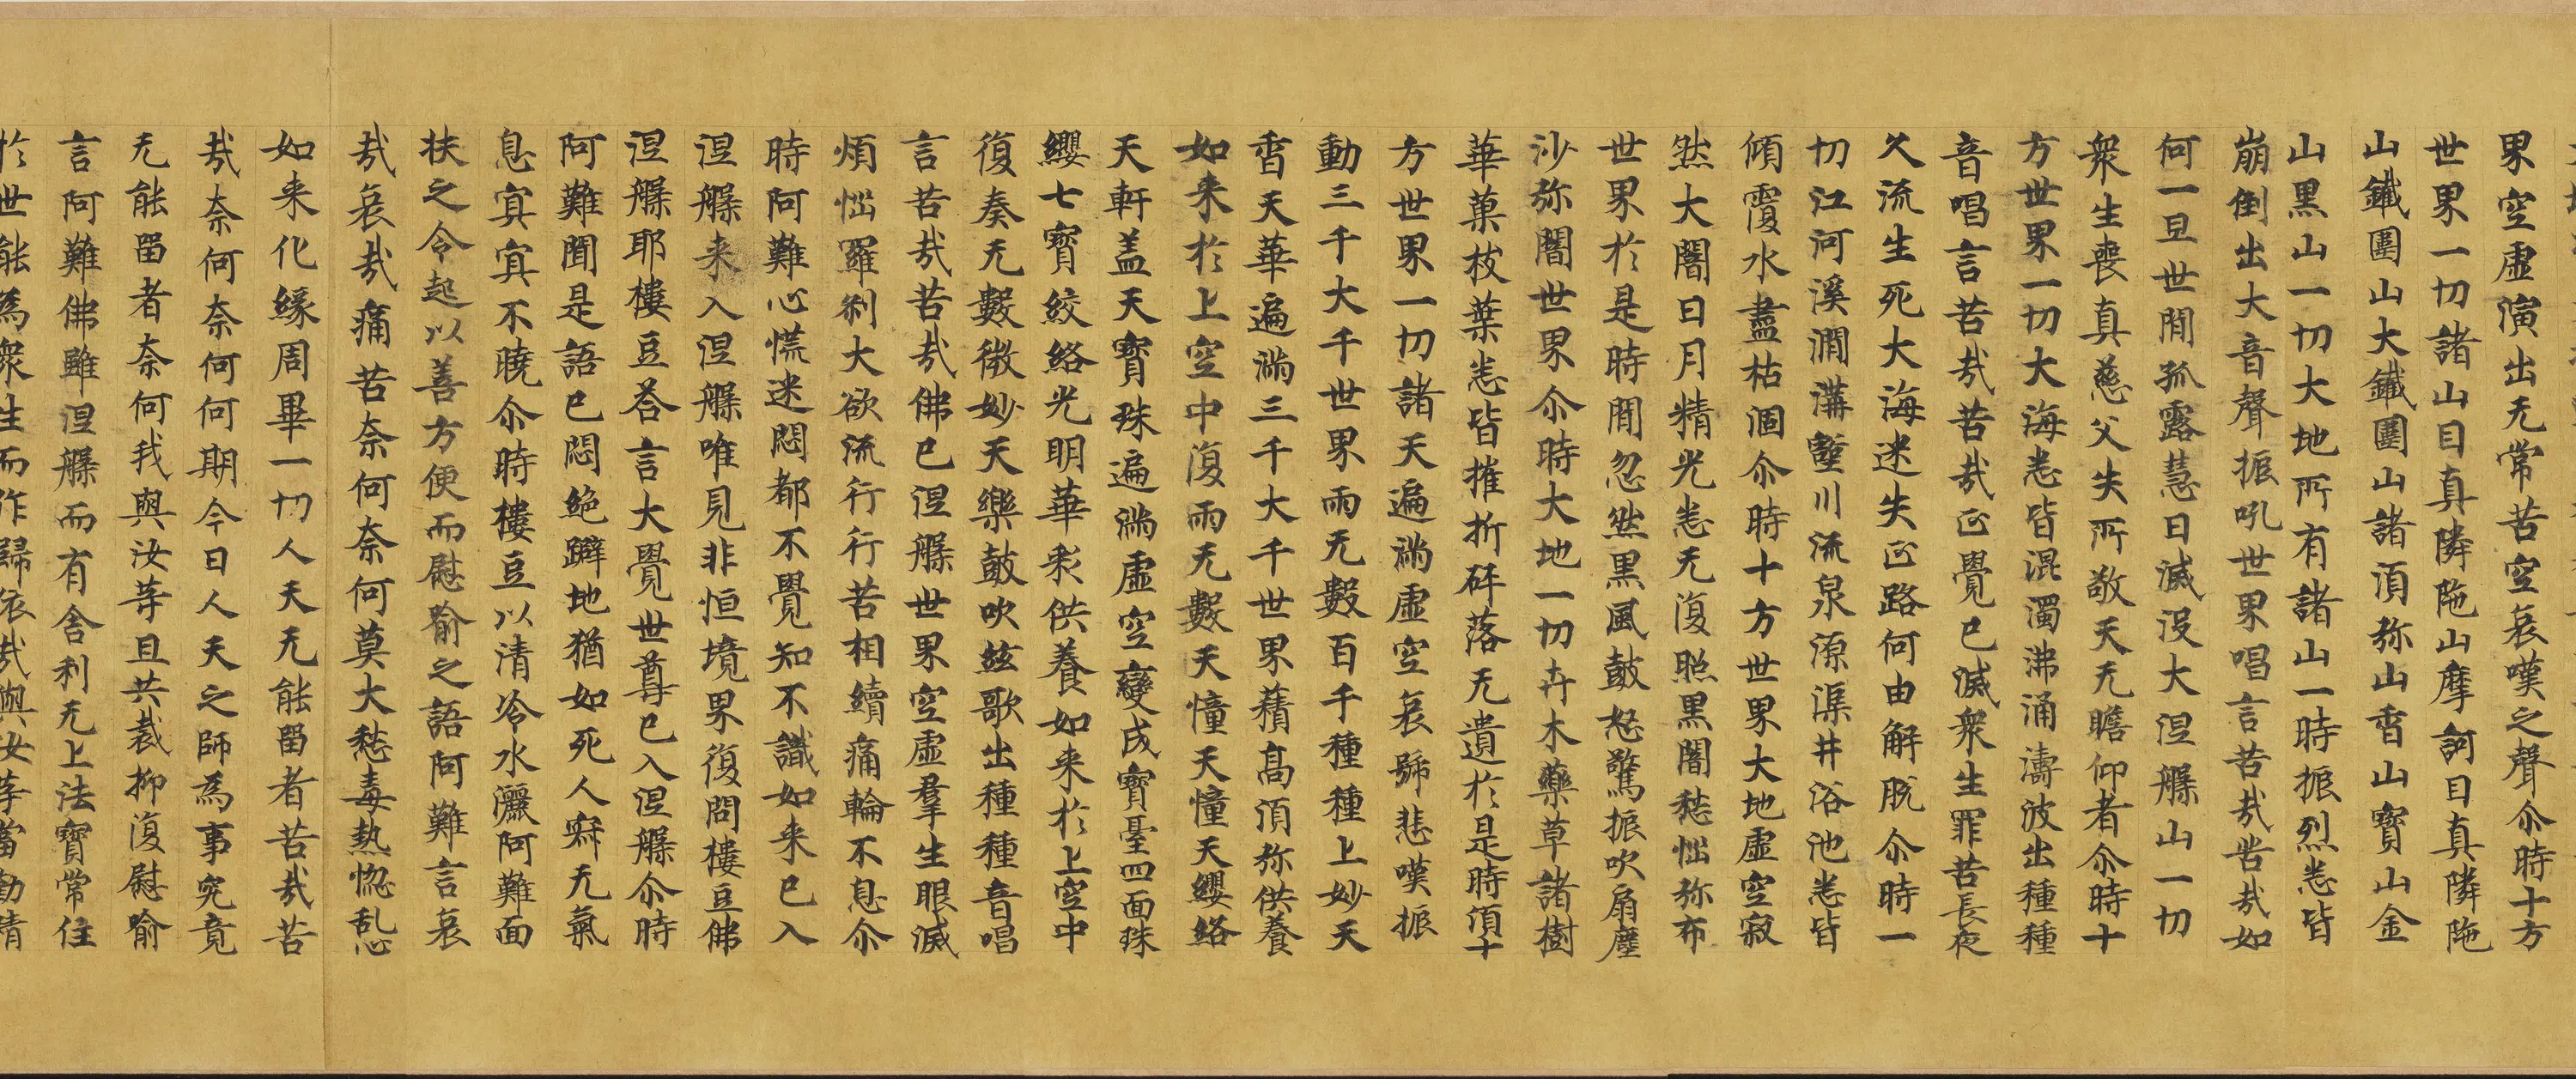 界空虛演出无常苦空哀嘆之聲尒時十方
世界一切諸山目真隣陁山摩訶目真隣陁
山鐵圍山大鐵圍山諸湏弥山香山寶山金
山黑山一切大地所有諸山一時振烈悉皆
崩倒出大音聲振吼世界唱言苦哉苦哉如
何一旦世閒孤露慧日滅沒大涅槃山一切
衆生喪真慈父失所敬天无瞻仰者尒時十
方世界一切大海悉皆混濁沸涌濤波出種種
音唱言苦哉苦哉正覺已滅衆生罪苦長夜
久流生死大海迷失正路何由解脫尒時一
切江河溪澗溝壑川流泉源渠井浴池悉皆
傾覆水盡枯涸尒時十方世界大地虛空寂
然大闇日月精光悉无復照黑闇愁惱弥布
世界於是時閒忽然黑風鼓怒驚振吹扇塵
沙弥闇世界尒時大地一切卉木藥草諸樹
華菓枝葉悉皆摧折碎落无遺於是時湏十
方世界一切諸天遍滿虛空哀號悲嘆振
動三千大千世界雨无數百千種種上妙天
香天華遍滿三千大千世界積高湏弥供養
如来於上空中復雨无數天幢天幢天纓絡
天軒盖天寶珠遍滿虛空變成寶臺四面珠
纓七寶絞絡光明華彩供養如来於上空中
復奏无數微妙天樂鼓吹絃歌出種種音唱
言苦哉苦哉佛已涅槃世界空虛羣生眼滅
煩惱羅刹大欲流行行苦相續痛輪不息尒
時阿難心慌迷悶都不覺知不識如来已入
涅槃来入涅槃唯見非恒境界復問樓豆佛
涅槃耶樓豆荅言大覺世尊已入涅槃尒時
阿難聞是語已悶絕躃地猶如死人寂无氣
息冥冥不曉尒時樓豆以清冷水灑阿難面
扶之令起以善方便而慰喻之語阿難言哀
哉哀哉痛苦奈何奈何莫大愁毒熱惱乱心
如来化緣周畢一切人天无能留者苦哉苦
哉奈何奈何何期今日人天之師為事究竟
无能留者奈何我與汝等且共裁抑復慰喻
言阿難佛雖涅槃而有舍利无上法寶常住
於世能為衆生而作歸依我與汝等當勤精